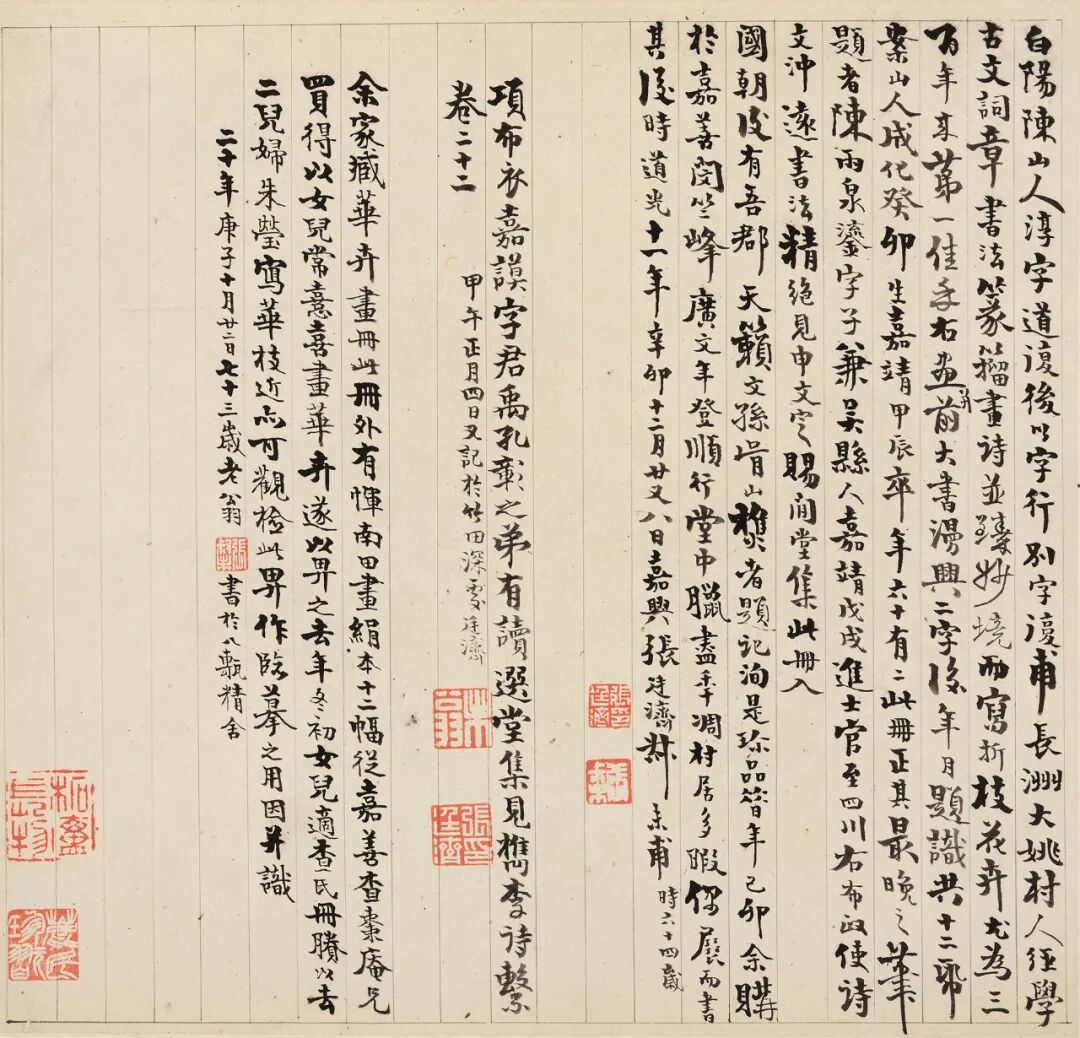 白陽陳山人淳字道復後以字行別字復甫長洲大姚村人經學
古文詞章書法篆籀畫詩並臻妙境而寫折枝花卉尤為三
百年來第一佳手右畫前大書漫興二字後年月題識共十二幀
并
案山人成化癸卯生嘉靖甲辰卒年六十有二此冊正其最晚之筆
題者陳雨泉鎏字子兼吳縣人嘉靖戊戌進士官至四川右布政使詩
文沖遠書法精絕見申文定賜閒堂集此冊入
國朝後有吾郡天籟文孫胥山樵者題記洵是珍品昔年己卯余購
於嘉善閔竺峰廣文年登順行堂中臘盡季凋村居多暇偶展而書
其後時道光十一年辛卯十二月廿又八日嘉興張廷濟叔未甫時六十四歲
張印廷濟
張叔未
項布衣嘉謨字君禹孔彰之弟有讀選堂集見檇李詩繫
卷二十二
甲午正月四日又記於竹田深處廷濟
張印廷濟
余家臧華卉畫冊此冊外有惲南田畫絹本十二幅從嘉善查棗庵兄
買得以女兒常憙喜畫華卉遂以畀之去年冬初女兒適查氏冊賸以去
二兒婦朱瑩寫華枝近亦可觀檢此畀作臨摹之用因并識
二十年庚子十月廿二日七十三歲老翁書於八甎精舍